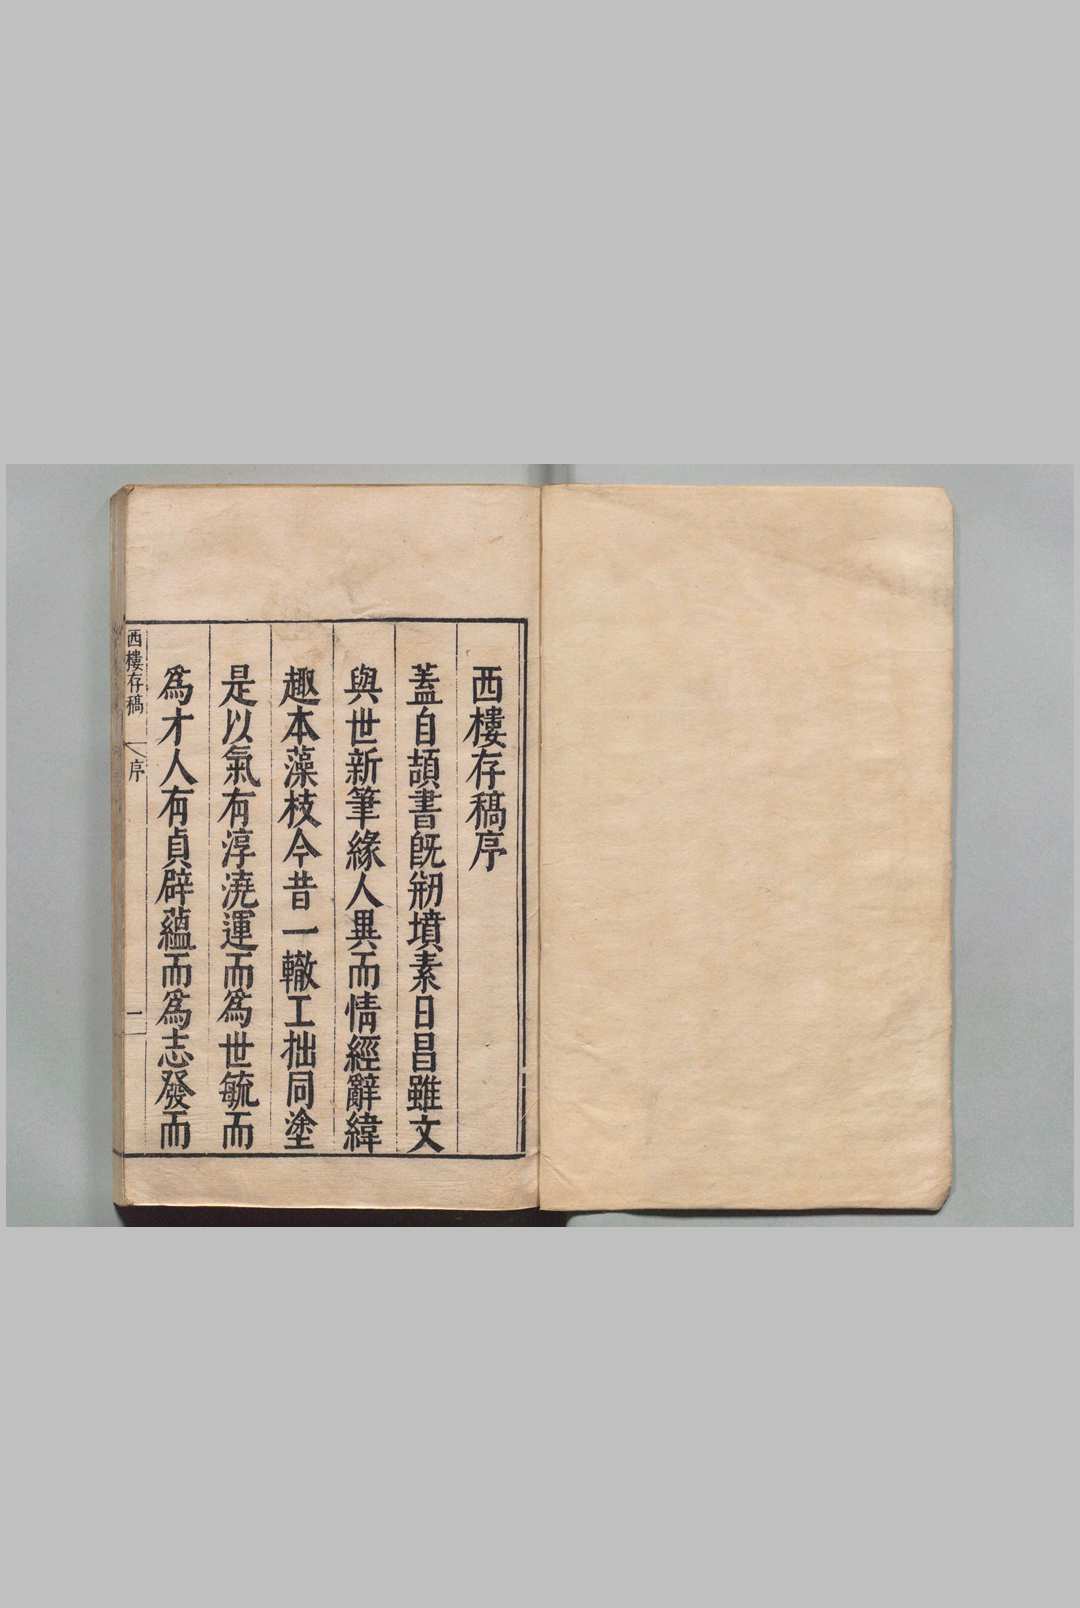 西樓存稿序
蓋自頡書旣剏墳素日昌雖文
與世新筆緣人異而情經辭緯
趣本藻枝今昔一轍工拙同塗
是以氣有淳澆運而為世毓而
為才人有貞辟蘊而為志發而
西樓存稿
序
一